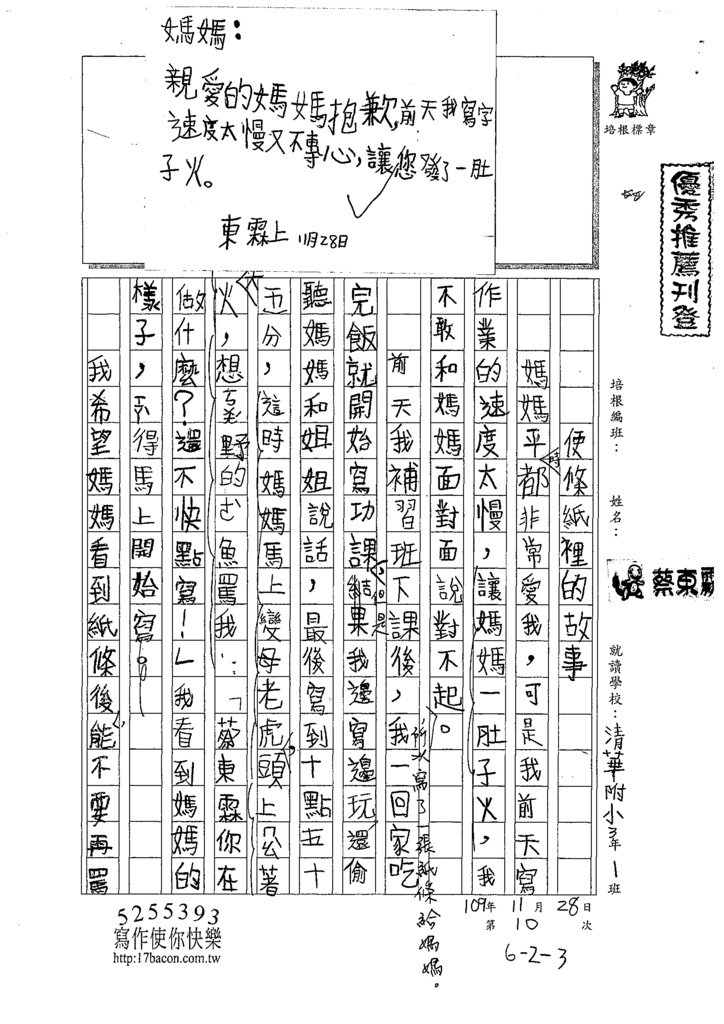 媽媽：
親愛的媽媽抱歉,前天我寫字
速度太慢又不專心,讓您發了一肚
子火。
東霖上 11月28日
培根標章
優秀推薦刊登
培根編班：
姓名：
蔡東霖
就讀學校：清華附小3年1班
109年11月28日
第10次
6-2-3
便條紙裡的故事
媽媽平時都非常愛我，可是我前天寫
作業的速度太慢，讓媽媽一肚子火，我
不敢和媽媽面對面說對不起。
所以寫了一張紙條給媽媽。
前天我補習班下課後，我一回家吃
完飯就開始寫功課，但是結果我邊寫邊玩還偷
聽媽媽和姐姐說話，最後寫到十點五十
五分，這時媽媽馬上變母老虎，頭上公著
火，想ㄠˊ野的ㄜˋ魚罵我：「蔡東霖你在
做什麼？還不快點寫！」我看到媽媽的
樣子，不得馬上開始寫。
我希望媽媽看到紙條後，能不要再罵
5255393
寫作使你快樂
http:17bacon.com.tw